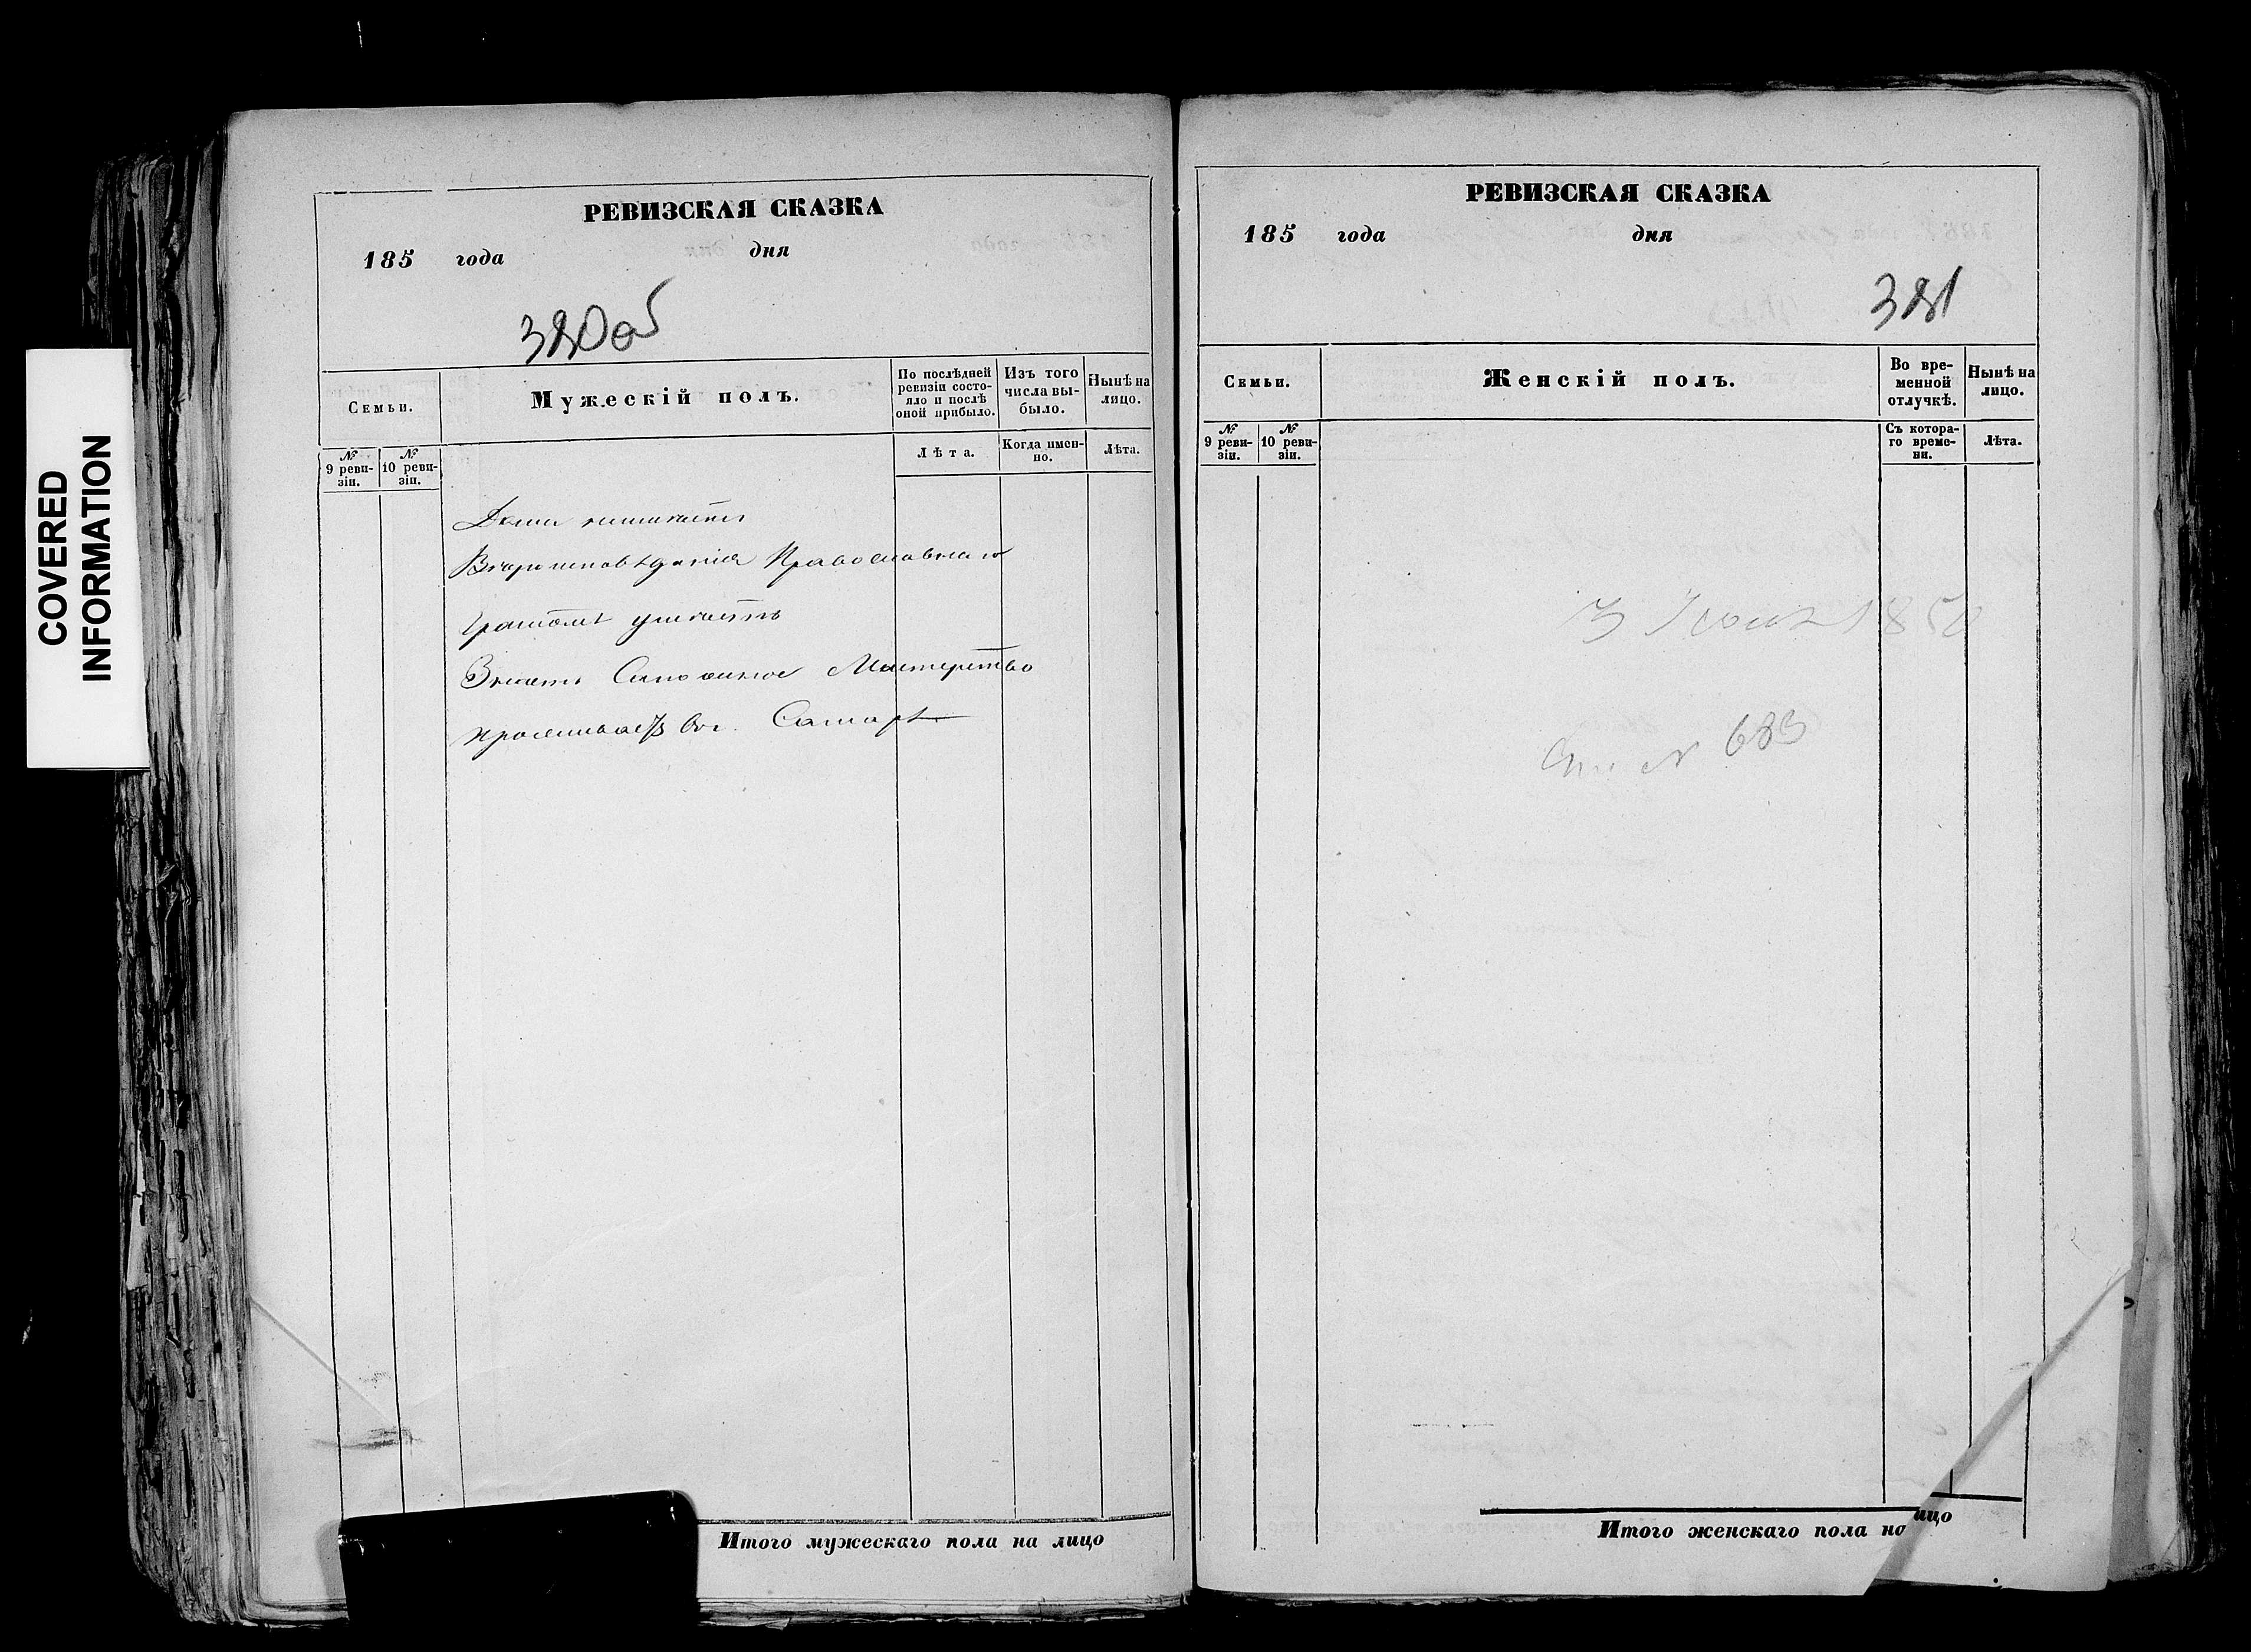 COVERED
INFORMATION
РЕВИЗСКАЯ СКАЗКА
185 года дня
380об
Семьи.
Мужескій полъ.
По послѣдней ревизіи состояло и послѣ оной прибыло.
Изъ того числа выбыло.
Нынѣ на лицо.
№ 9 ревизіи.
№ 10 ревизіи.
Лѣта.
Когда имен-но.
Лѣта.
Дома неимѣетъ
Вѣроисповѣданія Православнаго
Грамотѣ умѣетъ
Знаетъ Сапожное Мастерство
проживаетъ въ г. Самарѣ
Итого мужескаго пола на лицо
РЕВИЗСКАЯ СКАЗКА
185 года дня
381
Семьи.
Женскій полъ.
Во вре-менной отлучкѣ.
Нынѣ на лицо.
№ 9 реви-зіи.
№ 10 реви-зіи.
Съ котора-го време-ни.
Лѣта.
3 1850
№ 683
Итого женскаго пола на лицо